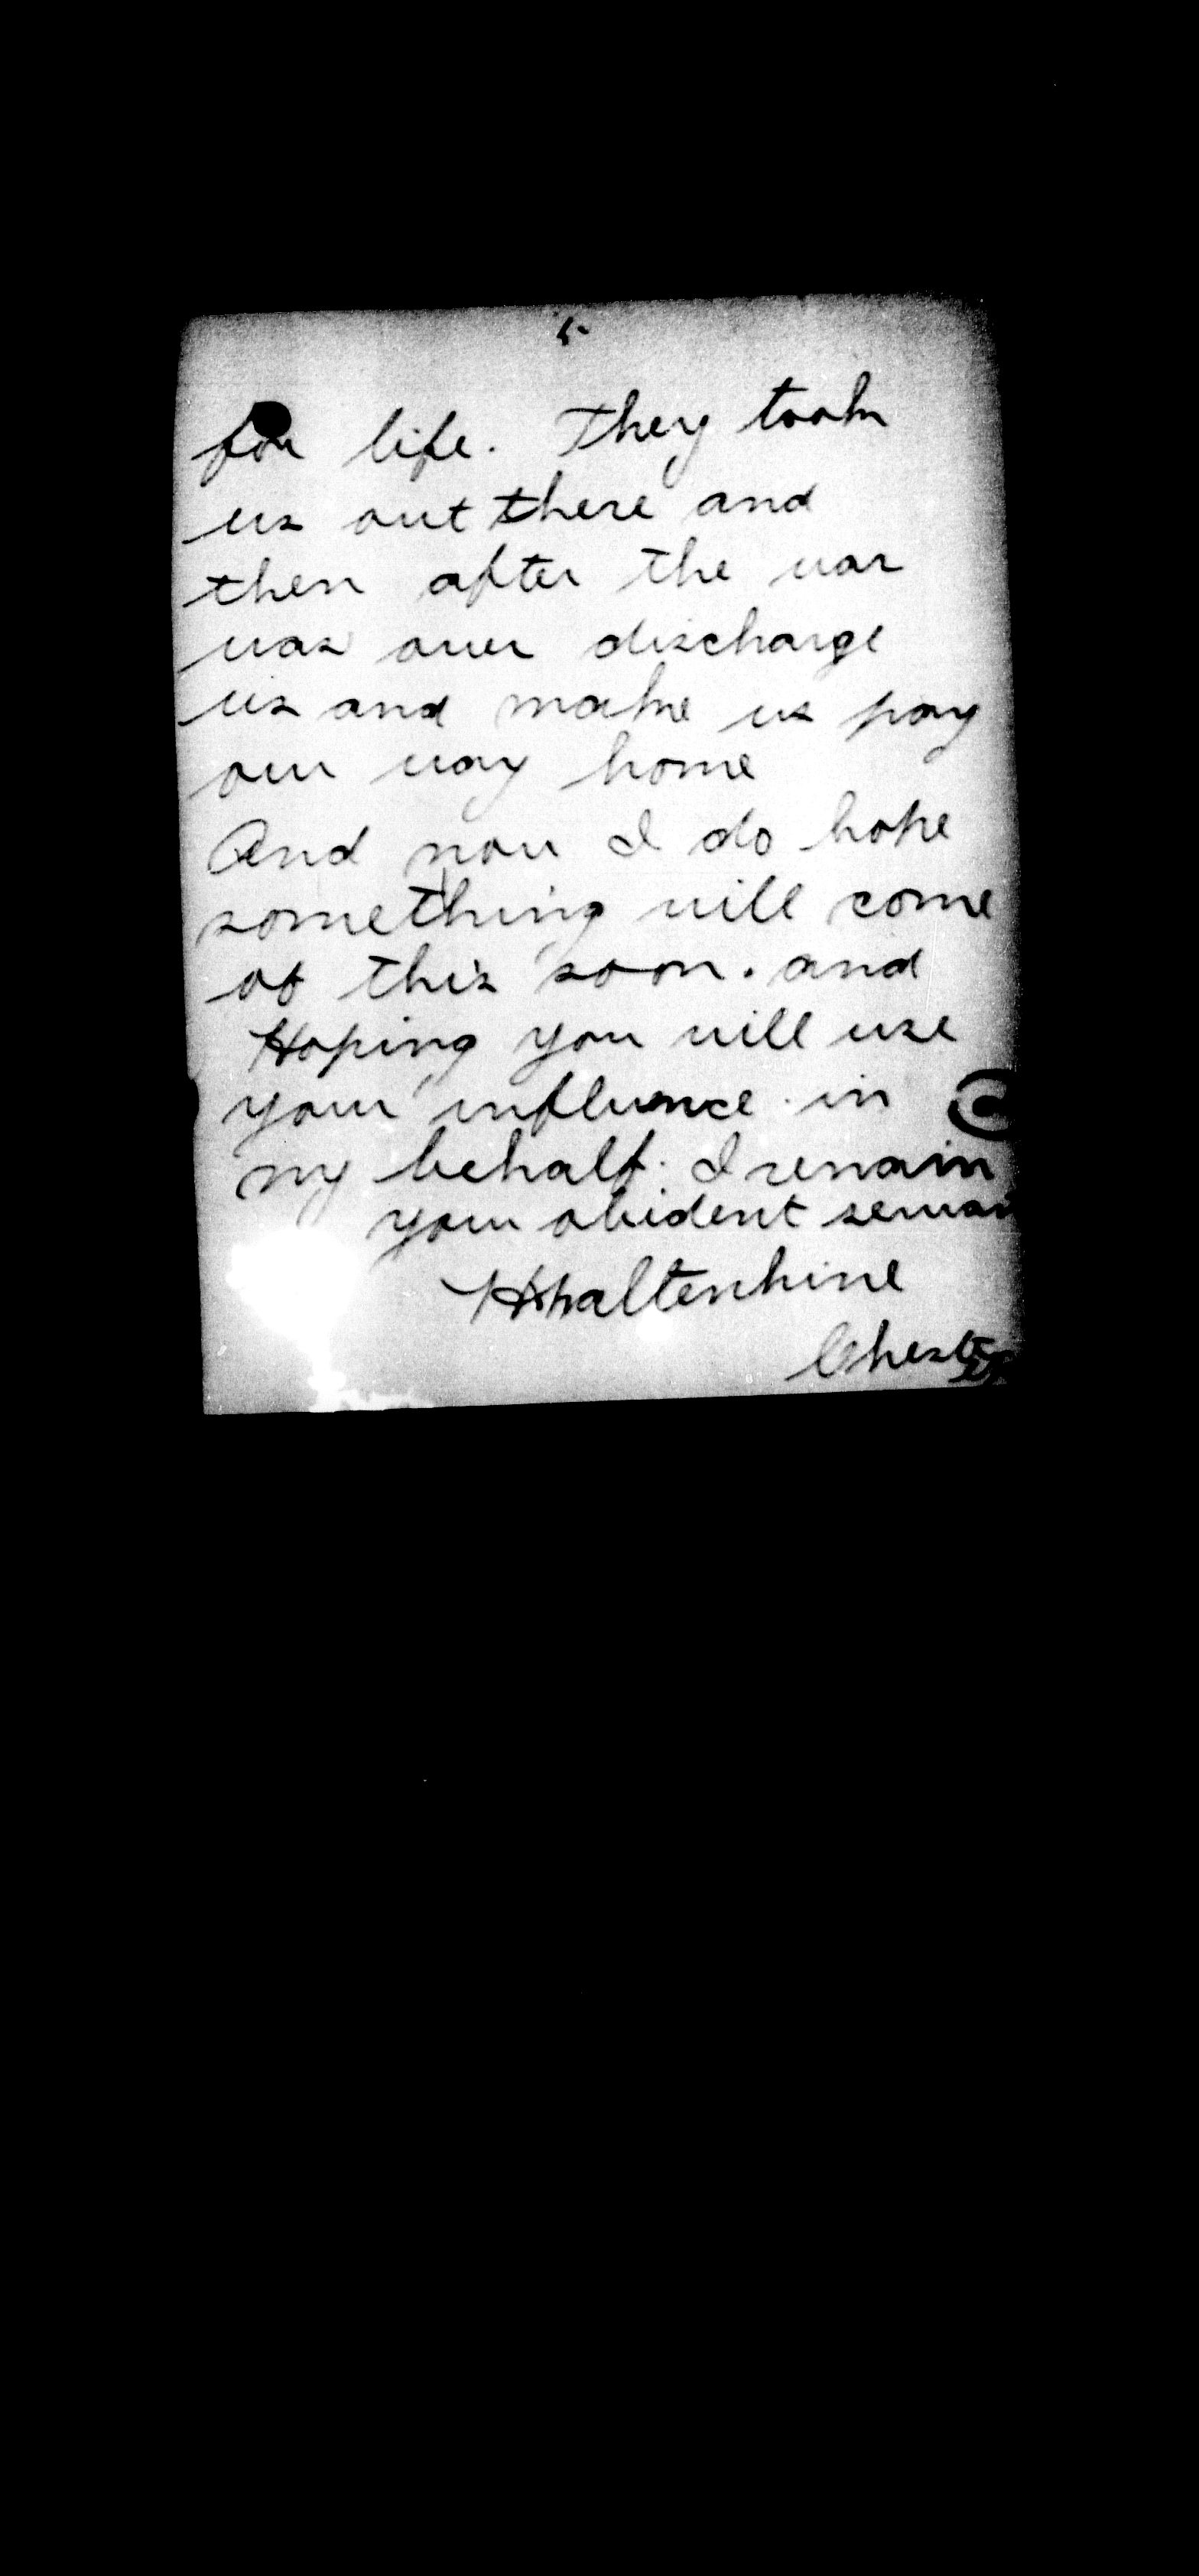 5-
for life. They took
us out there and
then after the war
was over discharge
us and make us pay
our way home
And now I do hope
something will come
of this soon. and
Hoping you will use
your influence in
my behalf. I remain
your obident servan
Chester